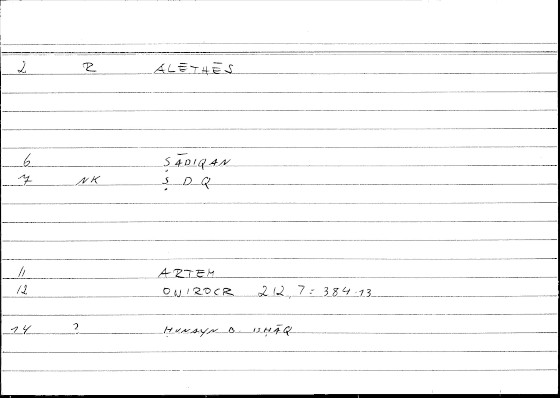 2 R ALĒTHĒS
6 ṢĀDIQAN
7 NK Ṣ D Q
11 ARTEM
12 ONIROCR 212,7 = 384.13
14 ? ḤUNAYN B. ISḤĀQ